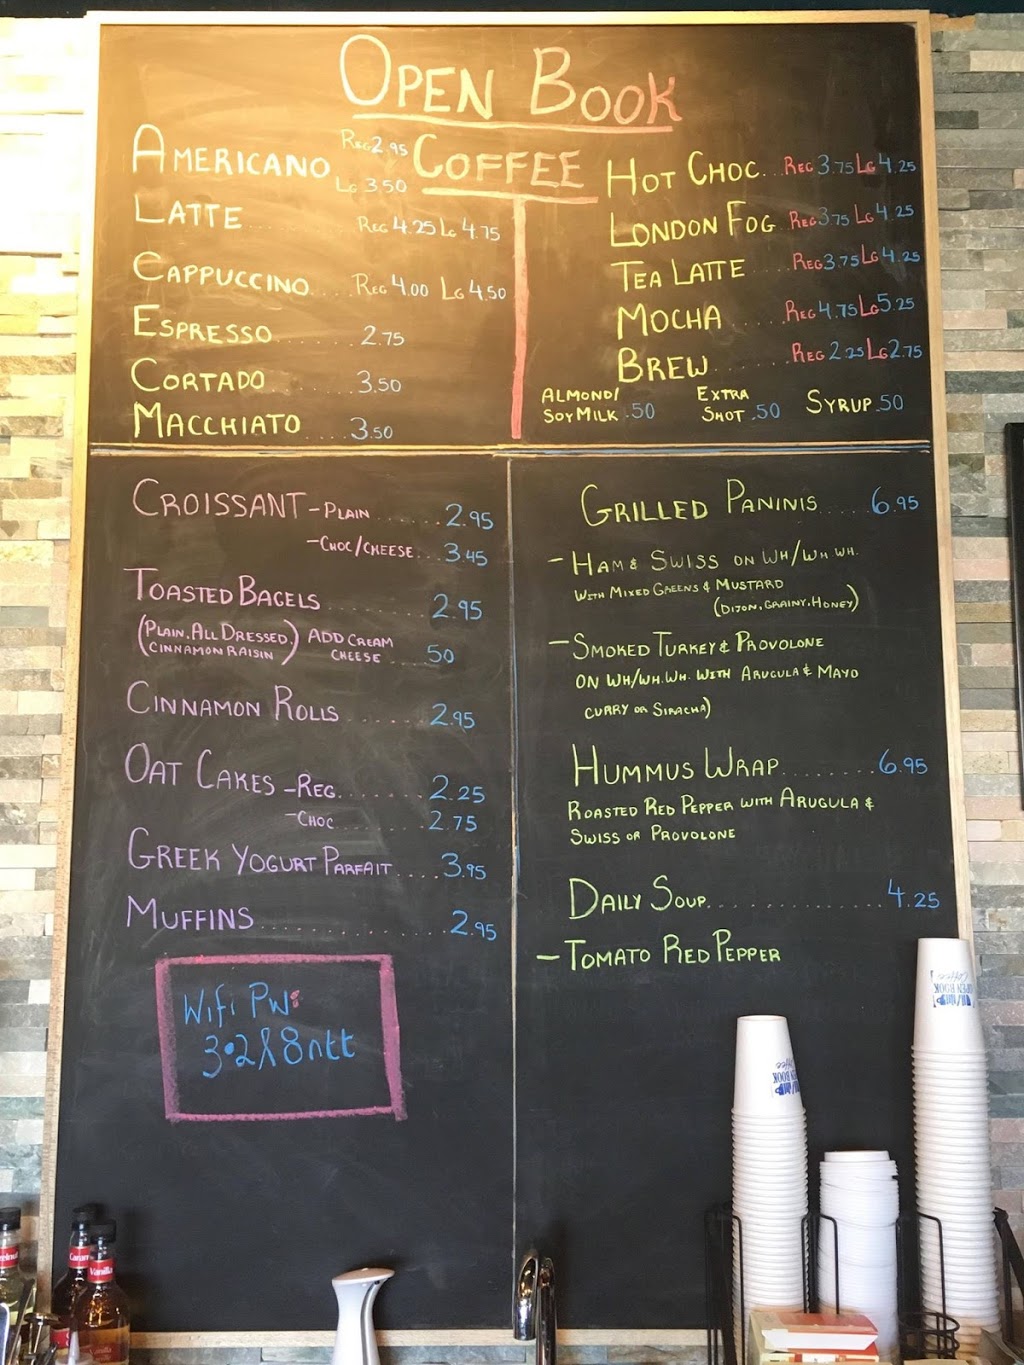 OPEN BOOK
COFFEE
AMERICANO REG 2.95
LG 3.50
LATTE ........... REG 4.25 LG 4.75
CAPPUCCINO..... REG 4.00 LG 4.50
ESPRESSO ........ 2.75
CORTADO ........ 3.50
MACCHIATO .... 3.50
HOT CHOC... REG 3.75 LG 4.25
LONDON FOG REG 3.75 LG 4.25
TEA LATTE ..... REG 3.75 LG 4.25
MOCHA ..... REG 4.75 LG 5.25
BREW........ REG 2.25 LG 2.75
ALMOND/
SOY MILK .50
EXTRA
SHOT .50
SYRUP .50
CROISSANT - PLAIN ........ 2.95
- CHOC/CHEESE... 3.45
TOASTED BAGELS .......... 2.95
(PLAIN. ALL DRESSED.
CINNAMON RAISIN) ADD CREAM
CHEESE .... 50
CINNAMON ROLLS ........ 2.95
OAT CAKES - REG......... 2.25
- CHOC ......... 2.75
GREEK YOGURT PARFAIT .... 3.95
MUFFINS .................. 2.95
Wifi PW:
GRILLED PANINIS ..... 6.95
- HAM & SWISS ON WH/WH WH.
WITH MIXED GREENS & MUSTARD
(DIJON, GRAINY, HONEY)
- SMOKED TURKEY & PROVOLONE
ON WH/WH. WH. WITH ARUGULA & MAYO
CURRY OR SIRACHA)
HUMMUS WRAP......... 6.95
ROASTED RED PEPPER WITH ARUGULA &
SWISS OR PROVOLONE
DAILY SOUP............... 4.25
- TOMATO RED PEPPER
OPEN BOOK
Coffee
OPEN BOOK
Coffee
Vanilla